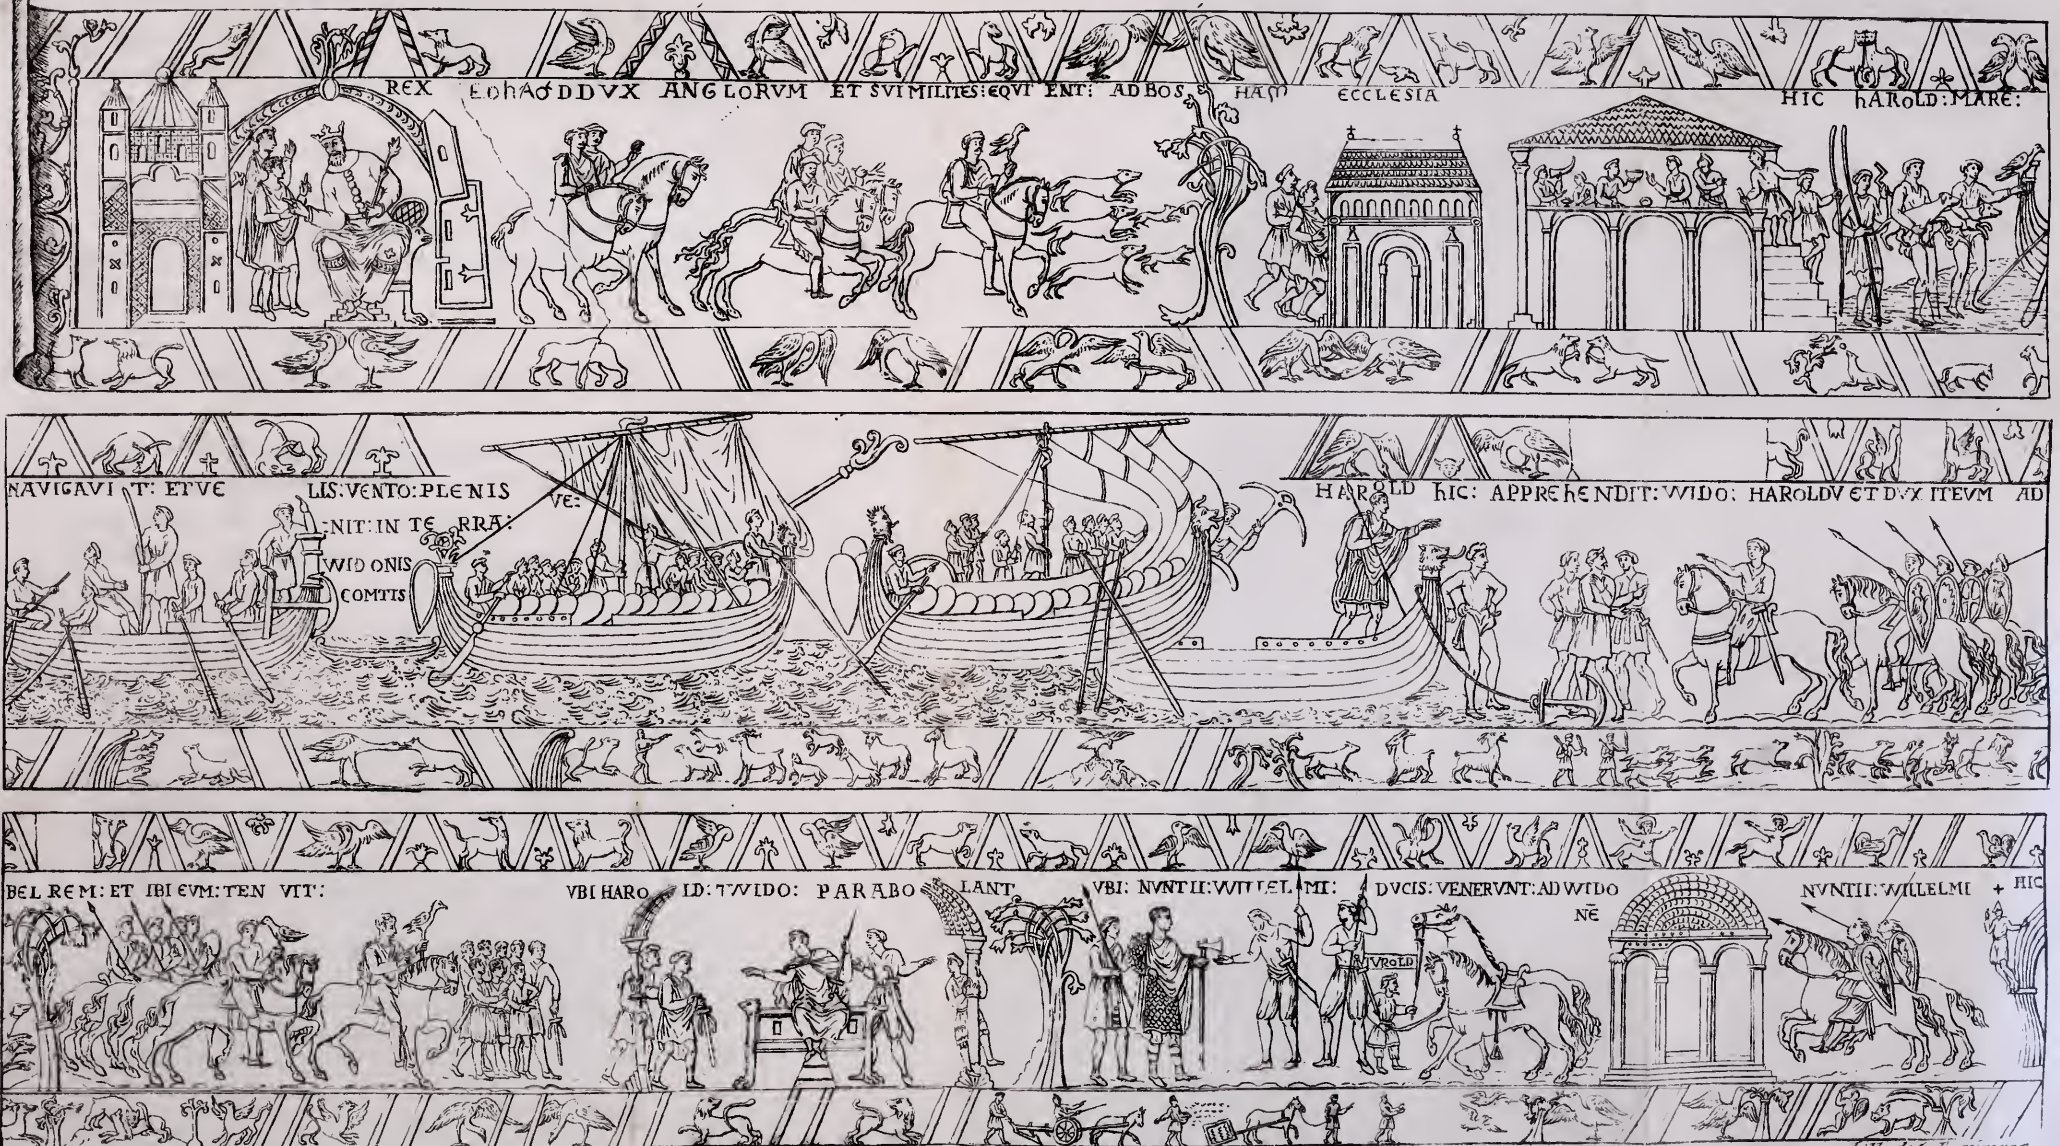 REX
HAROLD DUX ANGLORVM ET SVI MILITES: EQVI ENT: AD BOS HAM ECCLESIA HIC hAROLD: MARE:
NAVIGAVI T: ET VE LIS: VENTO: PLENIS VE-
-NIT: IN TE RRA:
WIDONIS
COMTIS
HAROLD hIC: APPREhENDIT: WIDO: HAROLDV ET DVX ITEVM AD
BEL REM: ET IBI EVM: TEN VIT: VBI HARO LD: 7 WIDO: PARABO LANT VBI: NVNTII: WILLEL MI: DVCIS: VENERVNT: AD WIDO
NĒ
TVROLD
NVNTII: WILLELMI + HIC